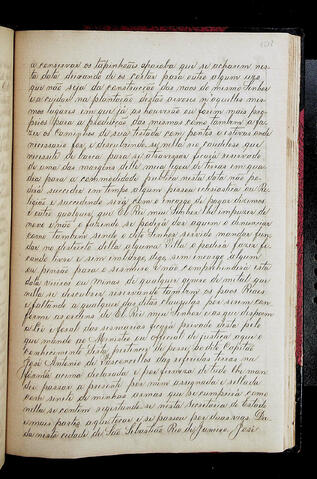 a conservar os tapinhoãs e peroba que se acharem nes-
ta data deixando de os cortar para outro algum uso
que não seja da construcção das naos do mesmo Senhor
e a cuidar na plantação destas arvores n'aquelles mes-
mos lugares em que já as houverão ou forem mais pro-
prios para a producção das mesmas como tambem a fa-
zer os caminhos de sua testada com pontes e estivas onde
necessario for e descubrindo-se nella rio caudeloso que
necessite de barca para se atravessar ficará reservada
de uma das margens delle meia legoa de terras em qua-
dra para a commodidade publica nesta data não po-
derá succeder em tempo algum pessoa eclesiastica ou Re-
ligião e succedendo será com o encargo de pagar dizimos
e outro qualquer que El Rei meu Senhor lhe impuzer de
novo e não o fazendo se poderá dar a quem o denunciar
como tambem sendo o dito Senhor servido mandar fun-
dar no destricto della alguma Villa o poderá fazer fi-
cando livre e sem embargo, digo, sem encargo algum
ou pensão para o sesmeiro e não comprehenderá esta
data vieiros ou Minas de qualquer genero de metal que
nella se descubrir reservando tambem os paos Reaes
e faltando a qualquer das ditas clausulas por serem con-
forme as ordens de El Rei meu Senhor e as que dispoem
a Lei e foral das sesmarias ficará privado desta pelo
que mando ao Ministro ou official de justiça a que o
conhecimento desta pertencer dê posse ao dito Capitão
José Antonio de Vasconcellos das referidas terras na
forma acima declarada e por firmeza de tudo lhe man-
dei passar a presente por mim assignada e sellada
com sinete de minhas armas que se cumprirá como
nella se contem registando-se nesta Secretaria de Estado
e mais partes a que tocar e se passou por duas vias. Da-
da nesta cidade de São Sebastião Rio de Janeiro. José